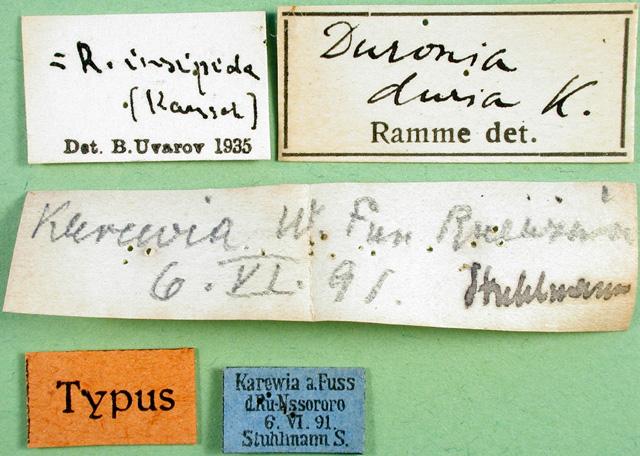 = R. insipida
(Karsch)
Det. B. Uvarov 1935
Duronia
duria K.
Ramme det.
Karewia W. Fuss
6. VI. 91. Stuhlmann
Typus
Karewia a. Fuss
d. Ru-Nssororo
6. VI. 91.
Stuhlmann S.